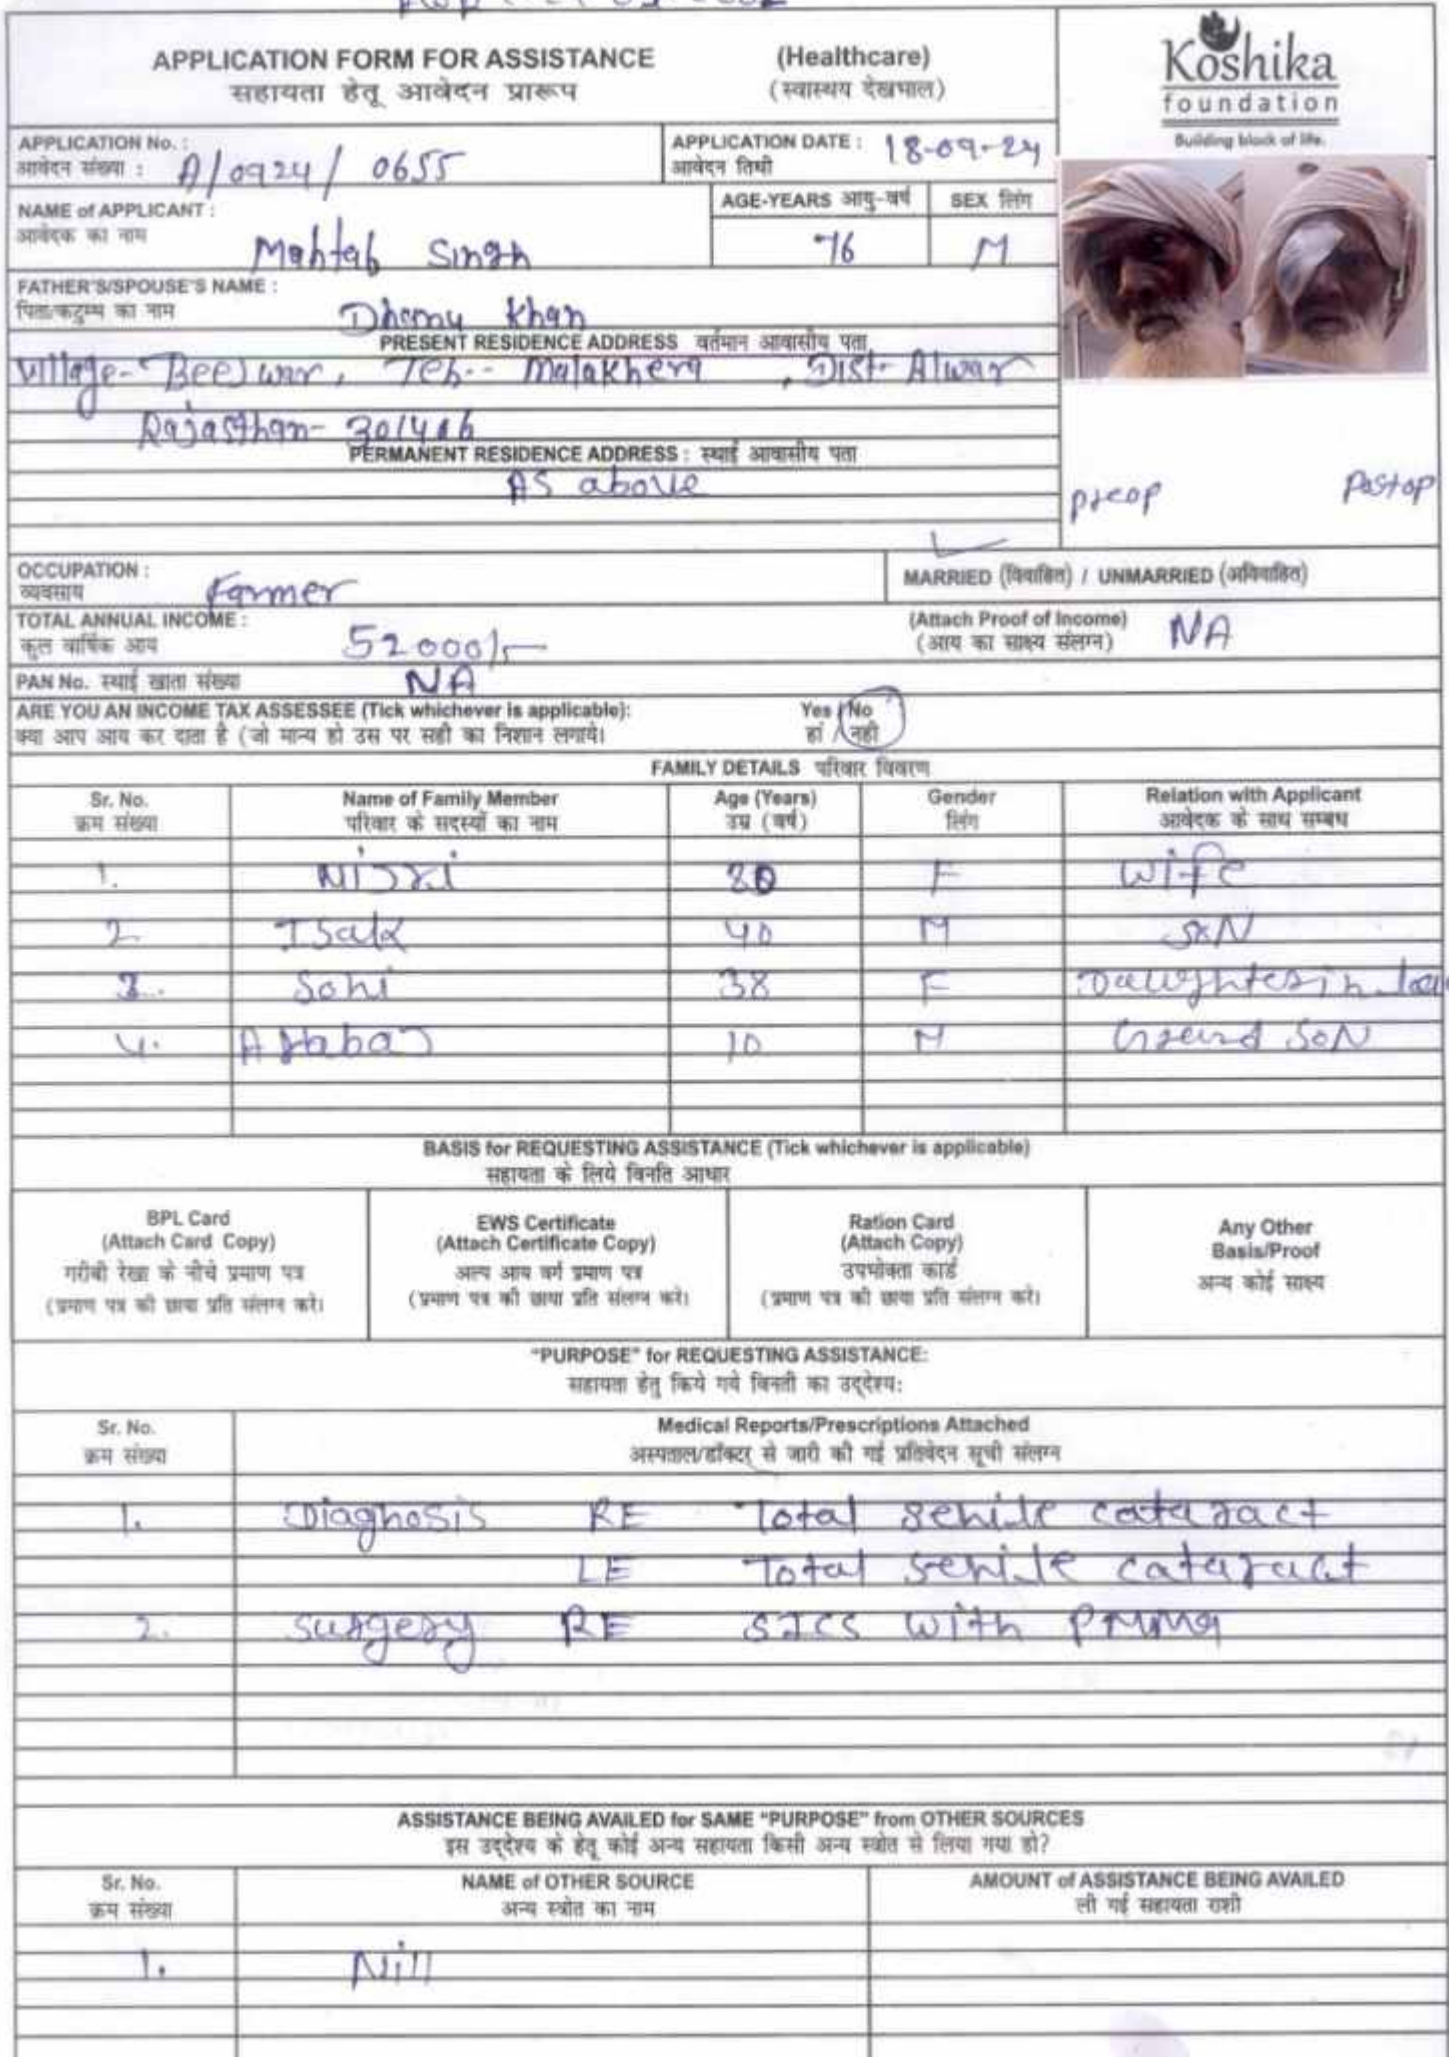 APPLICATION FORM FOR ASSISTANCE (Healthcare)
सहायता हेतू आवेदन प्रारूप (स्वास्थय देखभाल)
Koshika
foundation
Building block of life.
APPLICATION No. : A/0924/0655
आवेदन संख्या :
APPLICATION DATE : 18-09-24
आवेदन तिथी
NAME of APPLICANT : Mahtab Singh
आवेदक का नाम
AGE-YEARS आयु-वर्ष 76
SEX लिंग M
FATHER'S/SPOUSE'S NAME : Dhamu Khan
पिता/कटुम्ब का नाम
PRESENT RESIDENCE ADDRESS वर्तमान आवासीय पता
Village- Beejwar, Teh-- Malakhera , Dist- Alwar
Rajasthan- 301406
PERMANENT RESIDENCE ADDRESS : स्थाई आवासीय पता
As above
preop Postop
OCCUPATION : Farmer
व्यवसाय
MARRIED (विवाहित) / UNMARRIED (अविवाहित)
TOTAL ANNUAL INCOME : 52000/-
कुल वार्षिक आय
(Attach Proof of Income) NA
(आय का साक्ष्य संलग्न)
PAN No. स्थाई खाता संख्या NA
ARE YOU AN INCOME TAX ASSESSEE (Tick whichever is applicable): Yes / No
क्या आप आय कर दाता है (जो मान्य हो उस पर सही का निशान लगाये। हां / नही
FAMILY DETAILS परिवार विवरण
Sr. No. Name of Family Member Age (Years) Gender Relation with Applicant
क्रम संख्या परिवार के सदस्यों का नाम उम्र (वर्ष) लिंग आवेदक के साथ सम्बध
1. 80 F Wife
2 Isak 40 M SON
3. Sohi 38 F Daughter in law
4. 10 M Grand SON
BASIS for REQUESTING ASSISTANCE (Tick whichever is applicable)
सहायता के लिये विनति आधार
BPL Card
(Attach Card Copy)
गरीबी रेखा के नीचे प्रमाण पत्र
(प्रमाण पत्र की छाया प्रति संलग्न करे।
EWS Certificate
(Attach Certificate Copy)
अल्प आय वर्ग प्रमाण पत्र
(प्रमाण पत्र की छाया प्रति संलग्न करे।
Ration Card
(Attach Copy)
उपभोक्ता कार्ड
(प्रमाण पत्र की छाया प्रति संलग्न करे।
Any Other
Basis/Proof
अन्य कोई साक्ष्य
"PURPOSE" for REQUESTING ASSISTANCE:
सहायता हेतु किये गये विनती का उद्देश्य:
Sr. No. Medical Reports/Prescriptions Attached
क्रम संख्या अस्पताल/डॉक्टर से जारी की गई प्रतिवेदन सूची संलग्न
1. Diagnosis RE Total senile cataract
LE Total senile cataract
2. Surgery RE SICS with PMMA
ASSISTANCE BEING AVAILED for SAME "PURPOSE" from OTHER SOURCES
इस उद्देश्य के हेतू कोई अन्य सहायता किसी अन्य स्त्रोत से लिया गया हो?
Sr. No. NAME of OTHER SOURCE AMOUNT of ASSISTANCE BEING AVAILED
क्रम संख्या अन्य स्त्रोत का नाम ली गई सहायता राशी
1. Nill